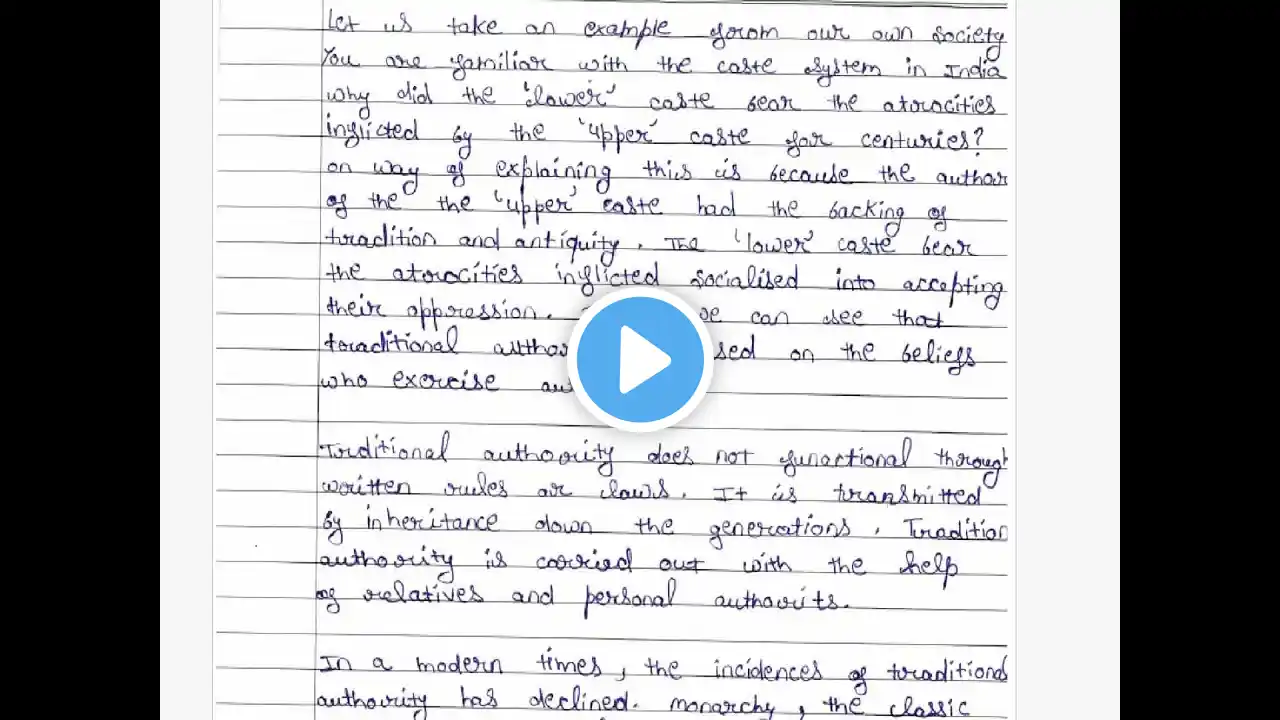 Let us take an example from our own society
You are familiar with the caste system in India
why did the 'lower' caste bear the atrocities
inflicted by the 'upper' caste for centuries?
on way of explaining this is because the author
of the the 'upper' caste had the backing of
tradition and antiquity. The 'lower' caste bear
the atrocities inflicted socialised into accepting
their oppression. can see that
traditional on the beliefs
who exercise
Traditional authority does not functional through
written rules or laws. It is transmitted
by inheritance down the generations. Tradition
authority is carried out with the help
of relatives and personal authorits.
In a modern times, the incidences of traditional
authority has declined. monarchy, the classic